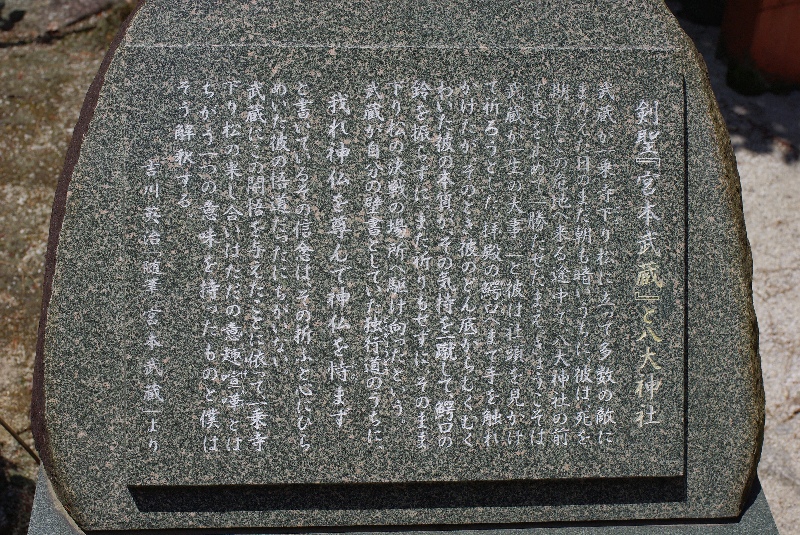 剣聖『宮本武蔵』と八大神社
武蔵が一乗寺下り松に立って多数の敵に
まみえた日のまだ朝も暗いうちに、彼は死を
決したこの危地へ来る途中で、八大神社の前
で足をとめ
武蔵が一生の大事」と彼は社頭を見かけ
て祈ろうとした。拝殿の鰐口へまで手を触れ
かけたが、そのとき彼のどん底からむくむく
わいた彼の本質が、その気持を一蹴して、鰐口の
鈴を振らずに、また祈りもせずに、そのまま
下り松の決戦の場所へ駆け向ったという。
武蔵が自分の壁書としていた独行道のうちに
我れ神仏を尊んで神仏を恃まず
と書いているその信念は、その折ふと心にひら
めいた彼の悟道だったにちがいない。
武蔵にこの開悟を与えたことに依って一乗寺
下り松の果し合いはただの意趣喧嘩とは
ちがう一つの意味を持ったものと僕は
そう解釈する
吉川英治「随筆 宮本武蔵」より